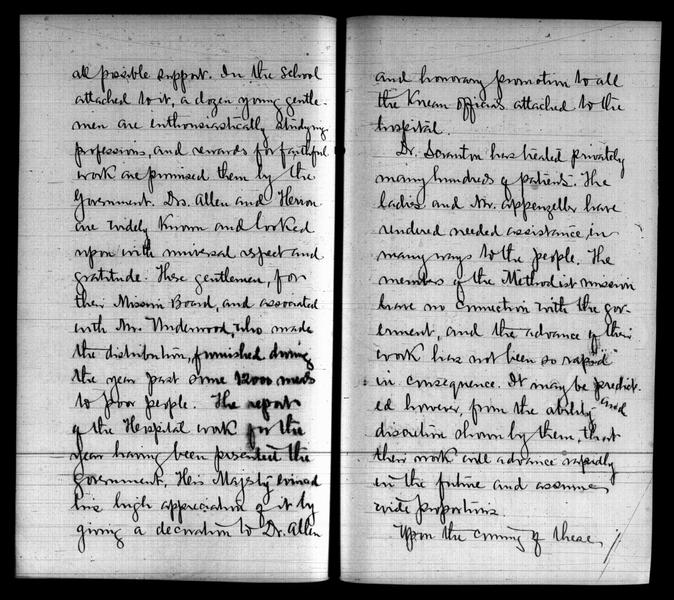 all possible support. In the School
attached to it, a dozen young gentle-
men are enthusiastically studying
professions, and rewards for faithful
work are promised them by the
Government. Drs. Allen and Herron
are widely known and looked
upon with universal respect and
gratitude. These gentlemen, for
their Mission Board, and associated
with Mr. Underwood, who made
the distribution, furnished during
the year past some 12000 meals
to poor people. The report
of the Hospital work for the
year having been presented the
government, His Majesty evinced
his high appreciation of it by
giving a decoration to Dr. Allen
and honorary promotion to all
the Korean officials attached to the
hospital.
Dr. Scranton has treated privately
many hundreds of patients. The
ladies and Mr. Appenzeller have
rendered needed assistance in
many ways to the people. The
members of the Methodist mission
have no connection with the gov-
ernment, and the advance of their
work has not been so rapid
in consequence. It may be predict-
ed however, from the ability and
discretion shown by them, that
their work will advance rapidly
in the future and assume
wide proportions.
Upon the coming of these